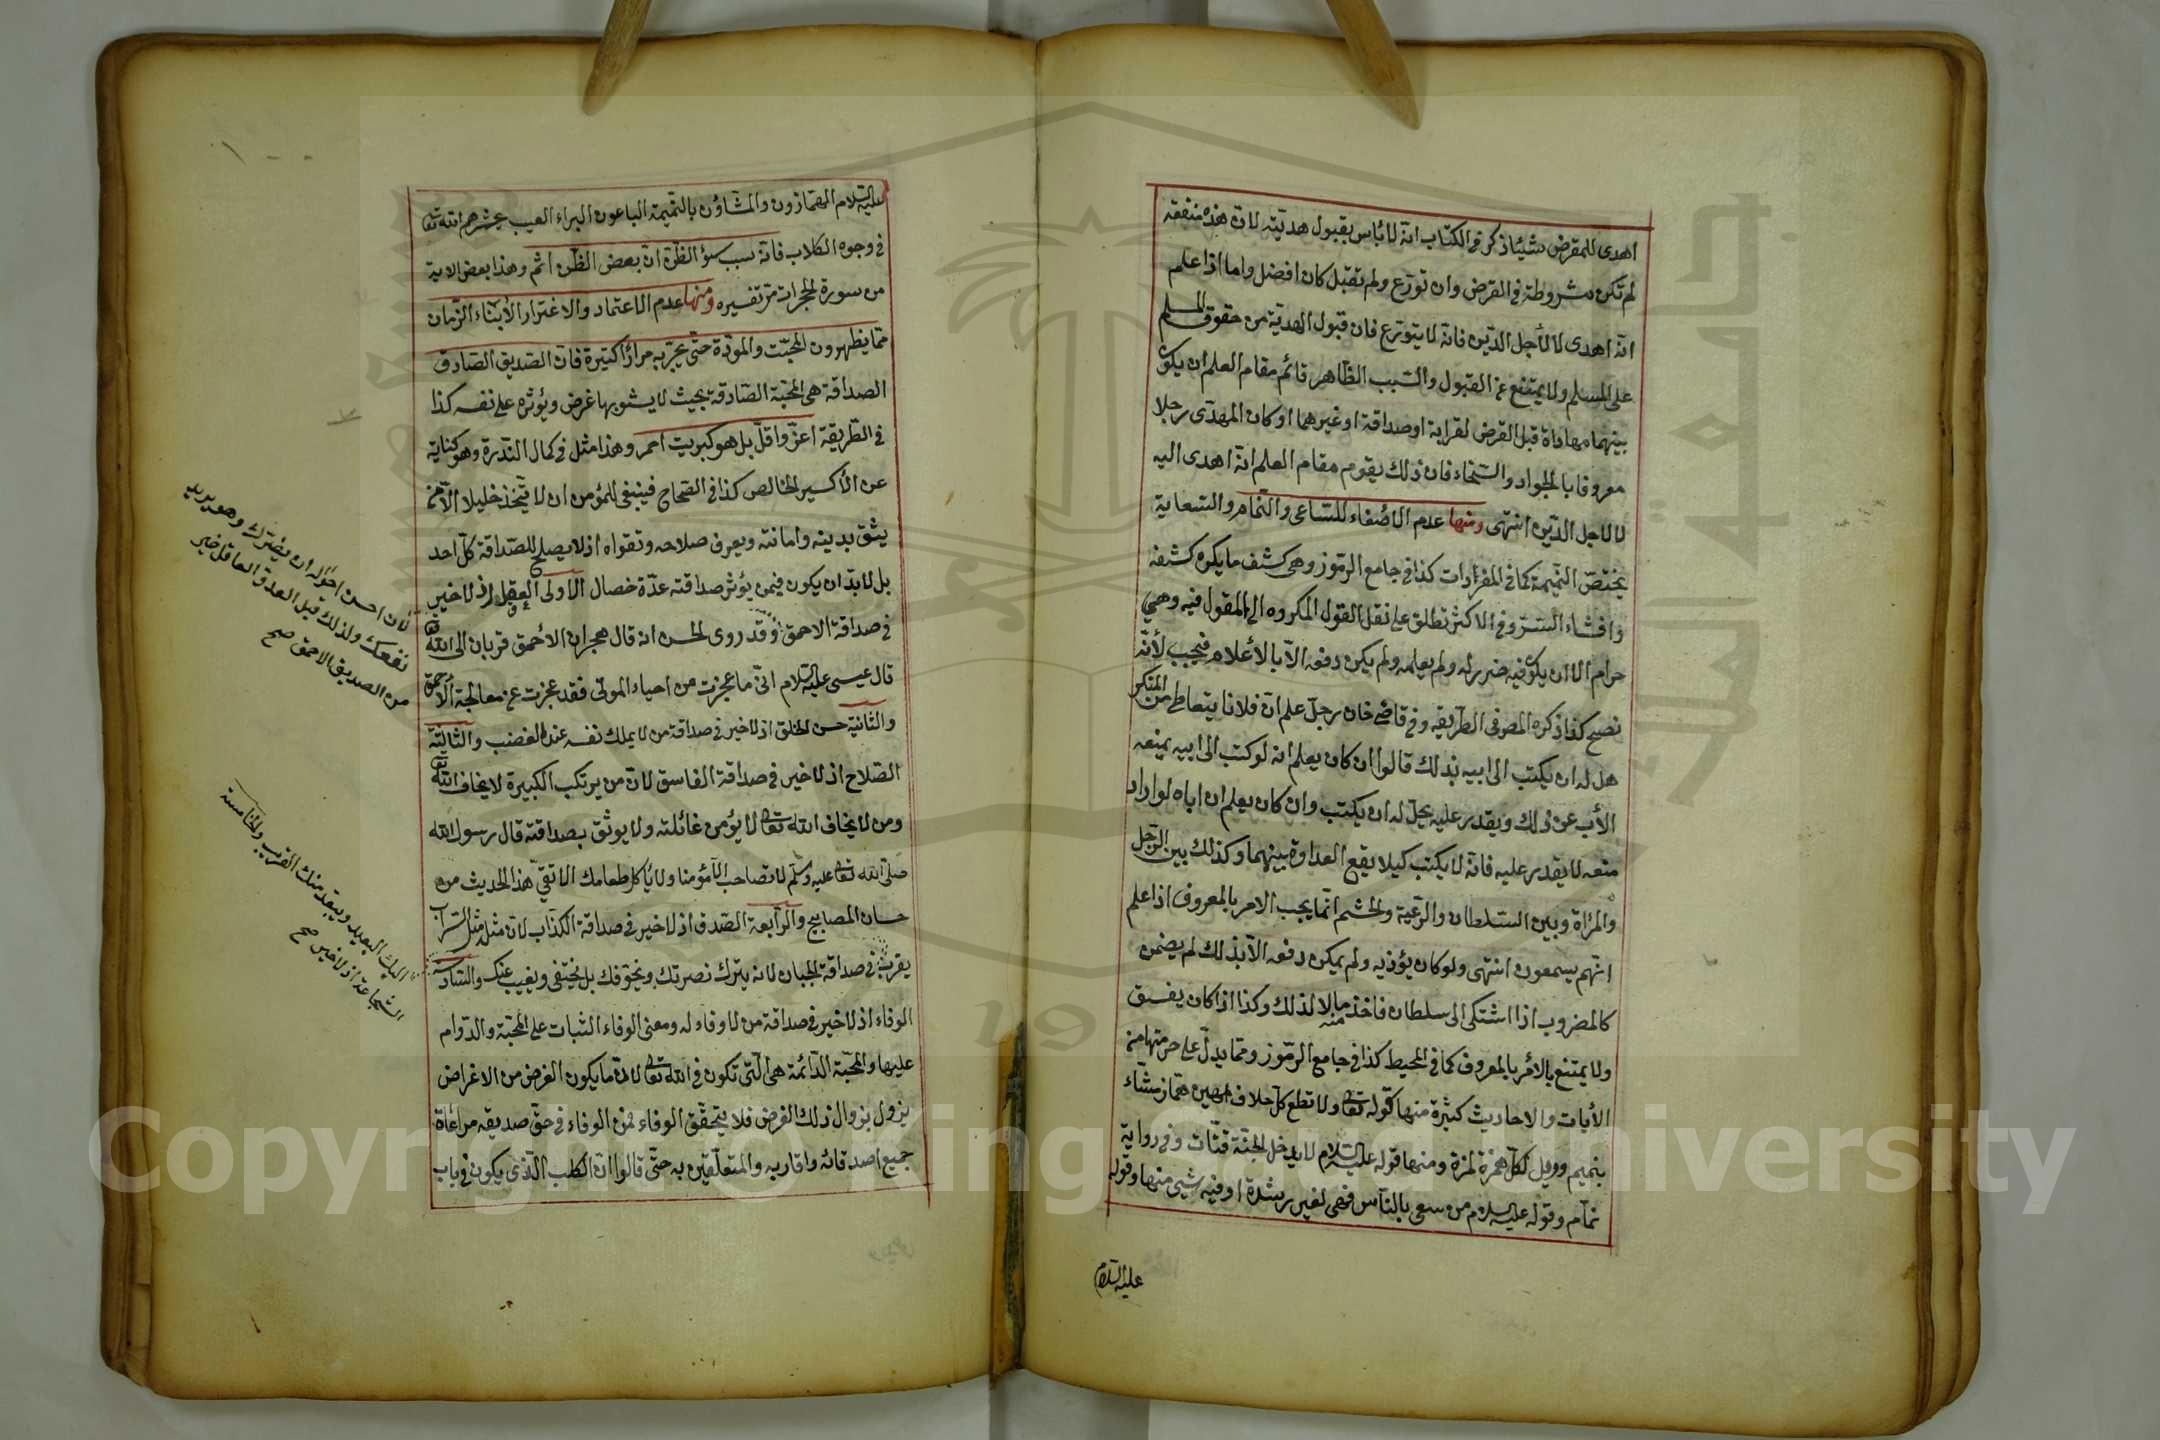 اهدى للمقرض شيئا ذكر في الكتاب انه لا بأس بقبول هديته لان هذه منفعة
لم تكن مشروطة في القرض وان تورع ولم تقبل كان افضل واما اذا علم
انه اهدى لا لأجل الدين فانه لا يتورع فان قبول الهدية من حقوق المسلم
على المسلم ولا يمتنع عن القبول والسبب الظاهر قائم مقام العلم ان يكون
بينهما مهاداة قبل القرض لقرابة او صداقة او غيرهما او كان المهدى رجلا
معروفا بالجواد والسخاء فان ذلك يقوم مقام العلم انه اهدى اليه
لا لاجل الدين انتهى ومنها عدم الاصغاء للساعى والنمام والسعاية
يختص النميمة كما في المفردات كذا في جامع الرموز وهي كشف ما يكره كشفه
وافشاء السر وفي الاكثر تطلق على نقل القول المكروه الى المقول فيه وهي
حرام الا ان يكون فيه ضرر له ولم يعلمه ولم يكن دفعه الا بالأعلام فيجب لأنه
نصح كذا ذكره المص في الطريقه وفي قاضي خان رجل علم ان فلانا يتعاطى من المنكر
هل له ان يكتب الى ابيه بذلك قالوا ان كان يعلم انه لو كتب الى ابيه يمنعه
الأب عن ذلك ويقدر عليه يحل له ان يكتب وان كان يعلم ان اباه لو اراد
منعه لا يقدر عليه فانه لا يكتب كيلا يقع العداوة بينهما وكذلك بين الرجل
والمرأة وبين السلطان والرعية والحشم انما يجب الامر بالمعروف اذا علم
انهم يسمعون انتهى ولو كان يؤذيه ولم يمكن دفعه الا بذلك لم يضمن
كالمضروب اذا اشتكى الى سلطان فاخذ منه مالا لذلك وكذا اذا كان يفسق
ولا يمتنع بالأمر بالمعروف كما في المحيط كذا في جامع الرموز ومما يدل على حرمتها من
الأيات والاحاديث كثيرة منها قوله تعالى ولا تطع كل حلاف مهين هماز مشاء
بنميم وويل لكل همزة لمزة ومنها قوله عليه السلام لا يدخل الجنة قتات وفي رواية
نمام وقوله عليه السلام من سعى بالناس فهي لغير رشدة او فيه شيئ منها وقوله
عليه السلام
عليه السلام الهمازون والمشاؤن بالنميمة الباعون البراء العيب يحشرهم الله تعا
في وجوه الكلاب فانه سبب سؤ الظن ان بعض الظن اثم وهذا بعض الاية
من سورة الحجرات مر تفسيره ومنها عدم الاعتماد والاغترار الأبناء الزمان
مما يظهرون المحبت والمودة حتى يجربه مرارا كثيرة فان الصديق الصادق
الصداقة هي المحبة الصادقة بحيث لا يشوبها غرض ويؤثره على نفسه كذا
في الطريقة اعز واقل بل هو كبريت احمر وهذا مثل في كمال الندرة وهو كناية
عن الأكسير الخالص كذا في الصحاح فينبغى للمؤمن ان لا يتخذ خليلا الا من
يثق بدينه وامانته ويعرف صلاحه وتقواه اذ لا يصلح للصداقة كل احد
بل لا بد ان يكون فيمن يؤثر صداقته عدة خصال الاولى العقل اذ لا خير
في صداقة الاحمق وقد روى الحسن انه قال هجران الأحمق قربان الى الله تعا
قال عيسى عليه السلام انى ما عجزت من احياء الموتى فقد عجزت عن معالجة الأحمق
والثانية حسن الخلق اذ لا خير في صداقة من لا يملك نفسه عند الغضب والثالثة
الصلاح اذ لا خير في صداقة الفاسق لان من يرتكب الكبيرة لا يخاف الله تعا
ومن لا يخاف الله تعالى لا يؤمن غائلته ولا يوثق بصداقته قال رسول الله
صلى الله تعالى عليه وسلم لا تصاحب الا مؤمنا ولا يأكل طعامك الا تقي هذا الحديث من
حسان المصابيح والرابعة الصدق اذ لا خير في صداقة الكذاب لان مثله مثل السراب
يقرب في صداقة الجبان لانه يترك نصرتك ويخوفك بل يختفى ويغيب عنك والسادسة
الوفاء اذ لا خير في صداقة من لا وفاء له ومعنى الوفاء الثبات على المحبة والدوام
عليها والمحبة الدائمة هي التي تكون في الله تعالى لان ما يكون الغرض من الاغراض
يزول بزوال ذلك الغرض فلا يتحقق الوفاء فمن الوفاء في حق صديقه مراعاة
جميع اصدقائه واقاربه والمتعلقين به حتى قالوا ان الكلب الذى يكون في باب
لان احسن احواله ان يضرك وهو يريد
نفعك ولذلك قيل العدو العاقل خير
من الصديق الاحمق صح
اليك البعيد ويبعد منك القريب والخامسة
الشجاعة اذ لا خير صح
Copyright © King Saud University